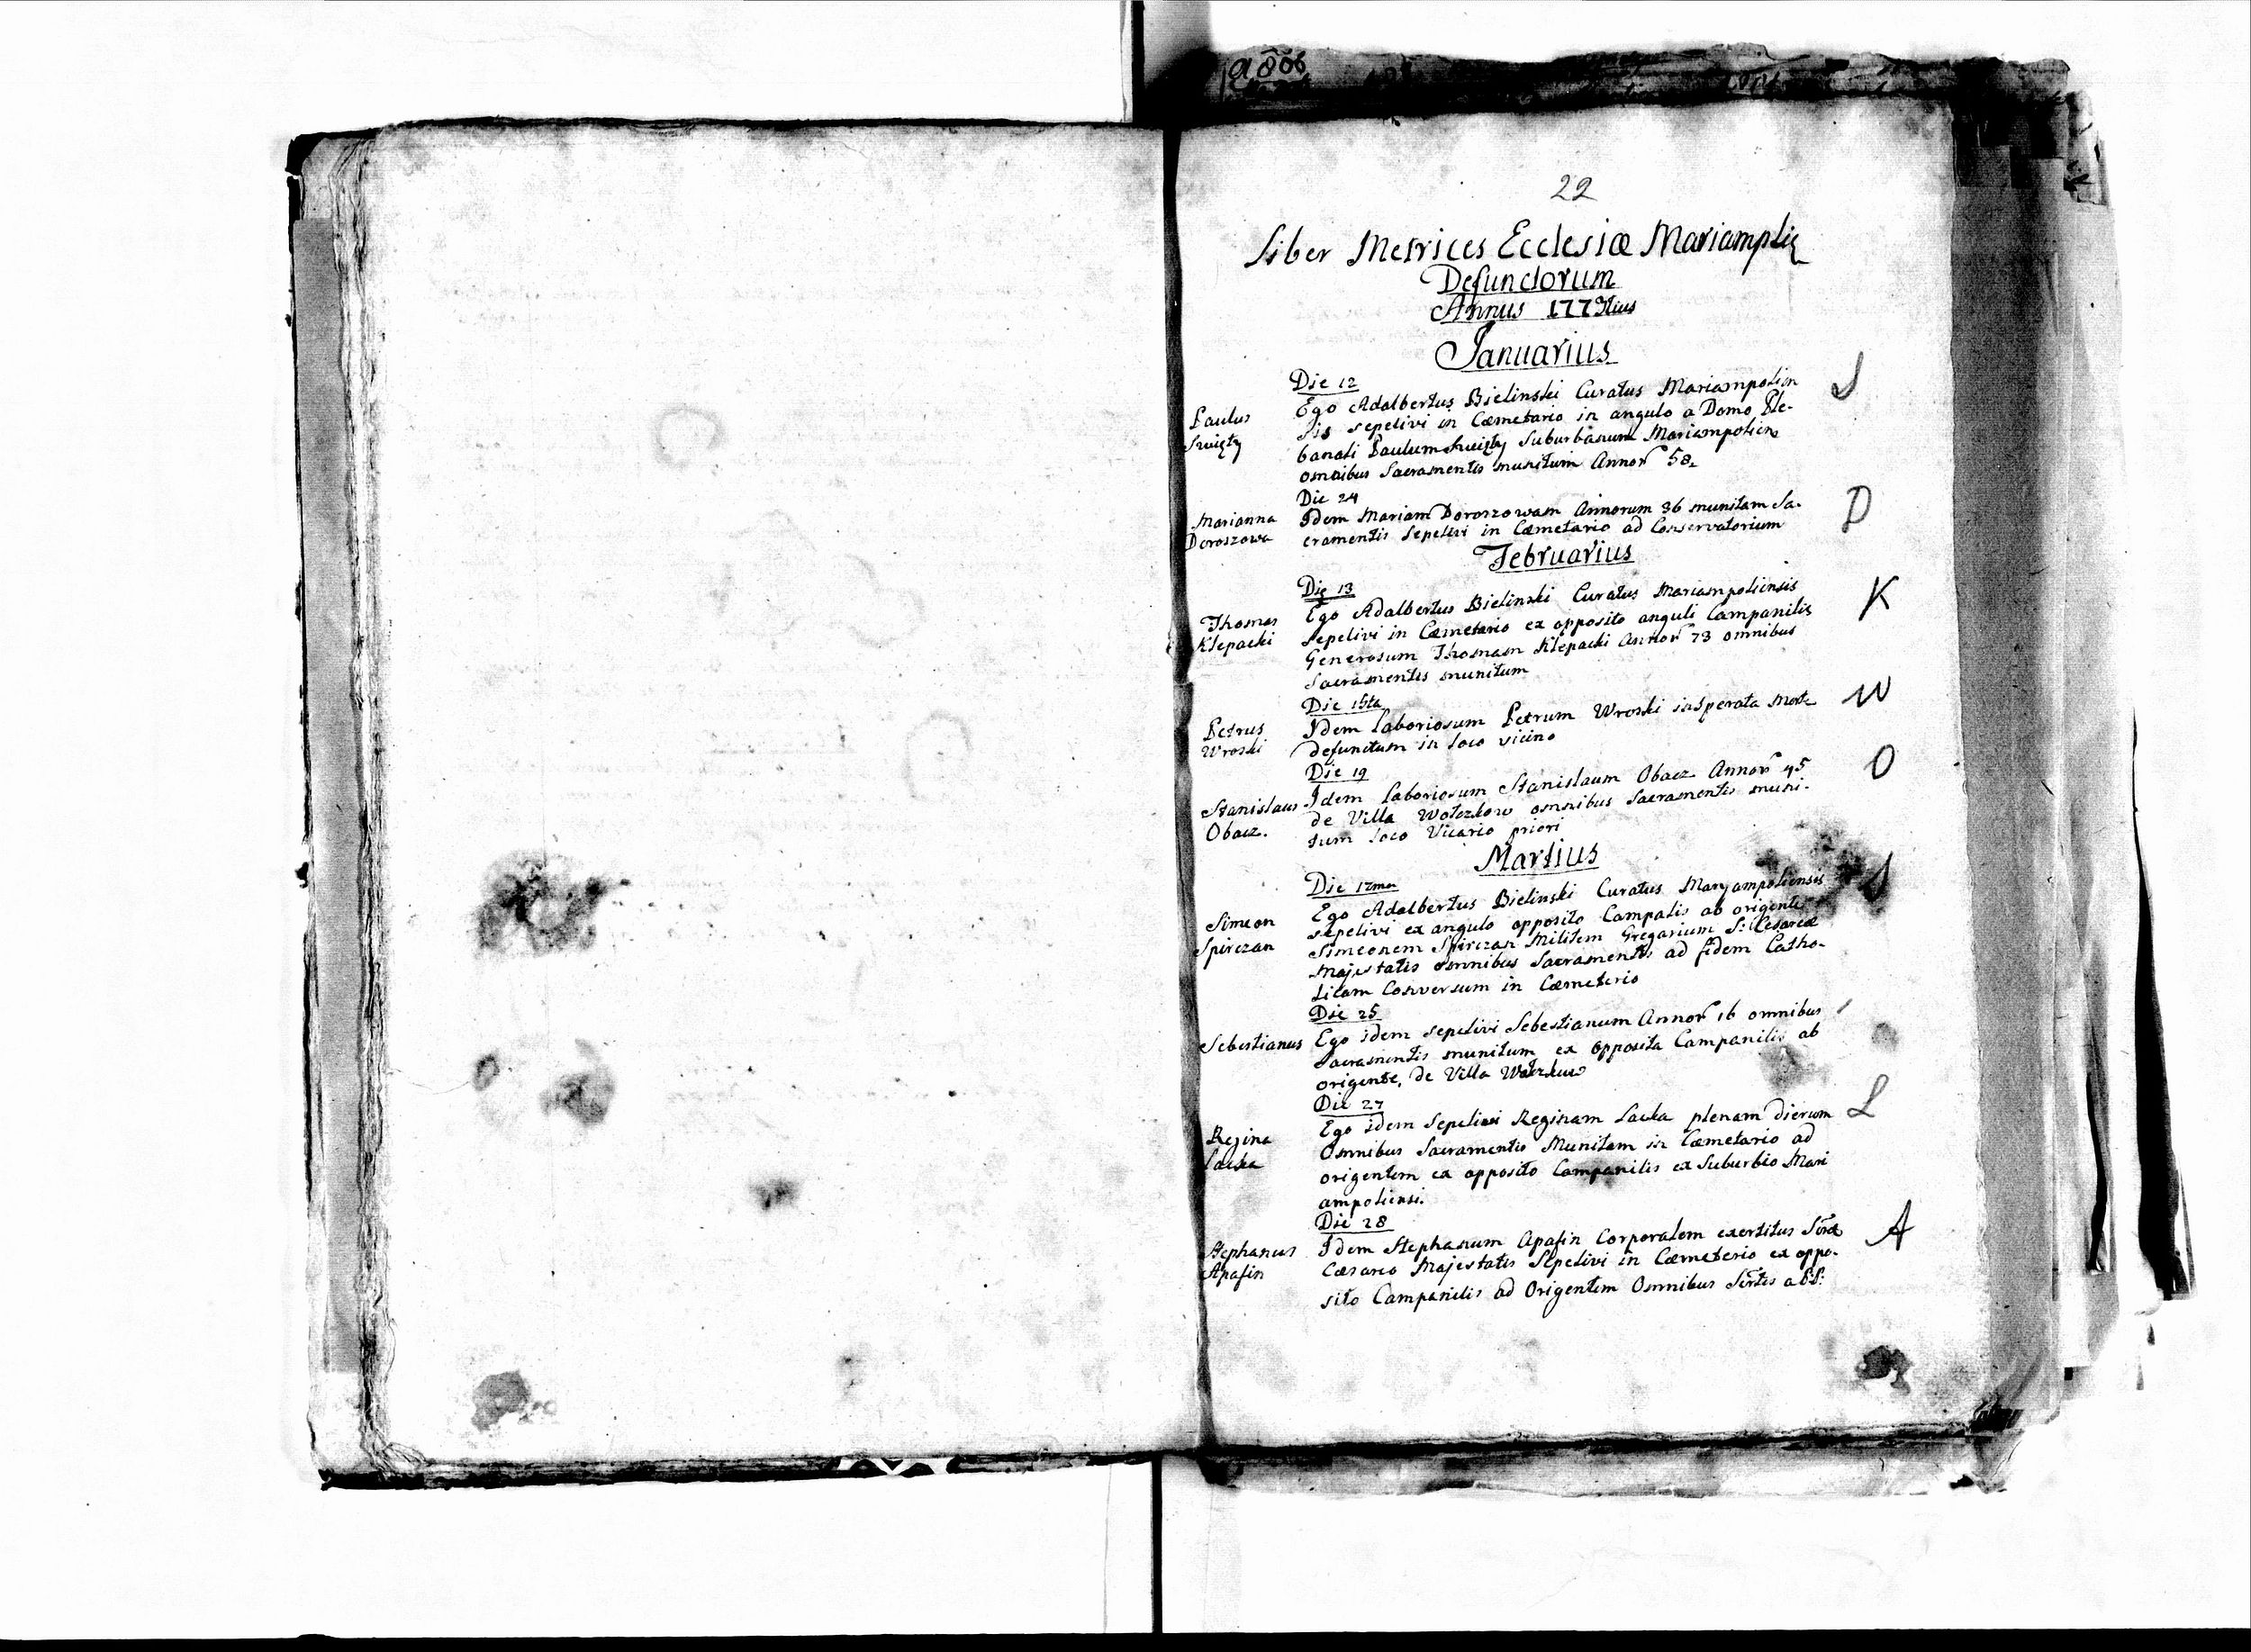 22
Liber Metrices Ecclesiæ Mariamplię
Defunctorum
Annus 1773tius
Januarius
Die 12
S
Paulus Ego Adalbertus Bielinski Curatus Mariampolien
Swięty sis sepelivi in Cæmetario in angulo a Domo Ple-
banali Paulum Swięty Suburbanum Mariampolien
omnibus Sacramentis munitum Annor 58.
Die 24
Marianna Idem Mariam Doroszowam Annorum 36 munitam Sa- D
Doroszowa cramentis Sepelivi in Cæmetario ad Conservatorium
Februarius
Die 13
Thomas Ego Adalbertus Bielinski Curatus Mariampoliensis K
Klepacki sepelivi in Cæmetario ex opposito anguli Campanilis
Generosum Thomam Klepacki Annor 73 omnibus
Sacramentis munitum
Die 15ta
Petrus Idem laboriosum Petrum Wroski insperata Morte W
Wroski defunctum in loco vicino
Die 19
Stanislaus Idem laboriosum Stanislaum Obacz Annor 45 O
Obacz. de Villa Wołczkow omnibus Sacramentis muni-
tum loco Vicario priori
Martius
Die 12ma
Simeon Ego Adalbertus Bielinski Curatus Maryampoliensis S
Spirczan sepelivi ex angulo opposito Campalis ab origente
Simeonem Spirczan Militem Gregarium S: Cesareæ
Majestatis omnibus Sacramentis ad fidem Catho-
licam Conversum in Cæmeterio
Die 25
Sebestianus Ego idem sepelivi Sebestianum Annor 16 omnibus
Sacramentis munitum ex opposita Campanilis ab
origente, de Villa
Die 27
Regina Ego idem Sepelivi Reginam Lacka plenam dierum L
Lacka Omnibus Sacramentis Munitam in Cæmetario ad
origentem ex opposito Campanilis ex Suburbio Mari
ampoliensi.
Die 28
Stephanus Idem Stephanum Apafin Corporalem exertitus Sæ A
Apafin Cæsareo Majestatis Sepelivi in Cæmeterio ex oppo-
sito Campanilis ad Origentem Omnibus Sctis abs: